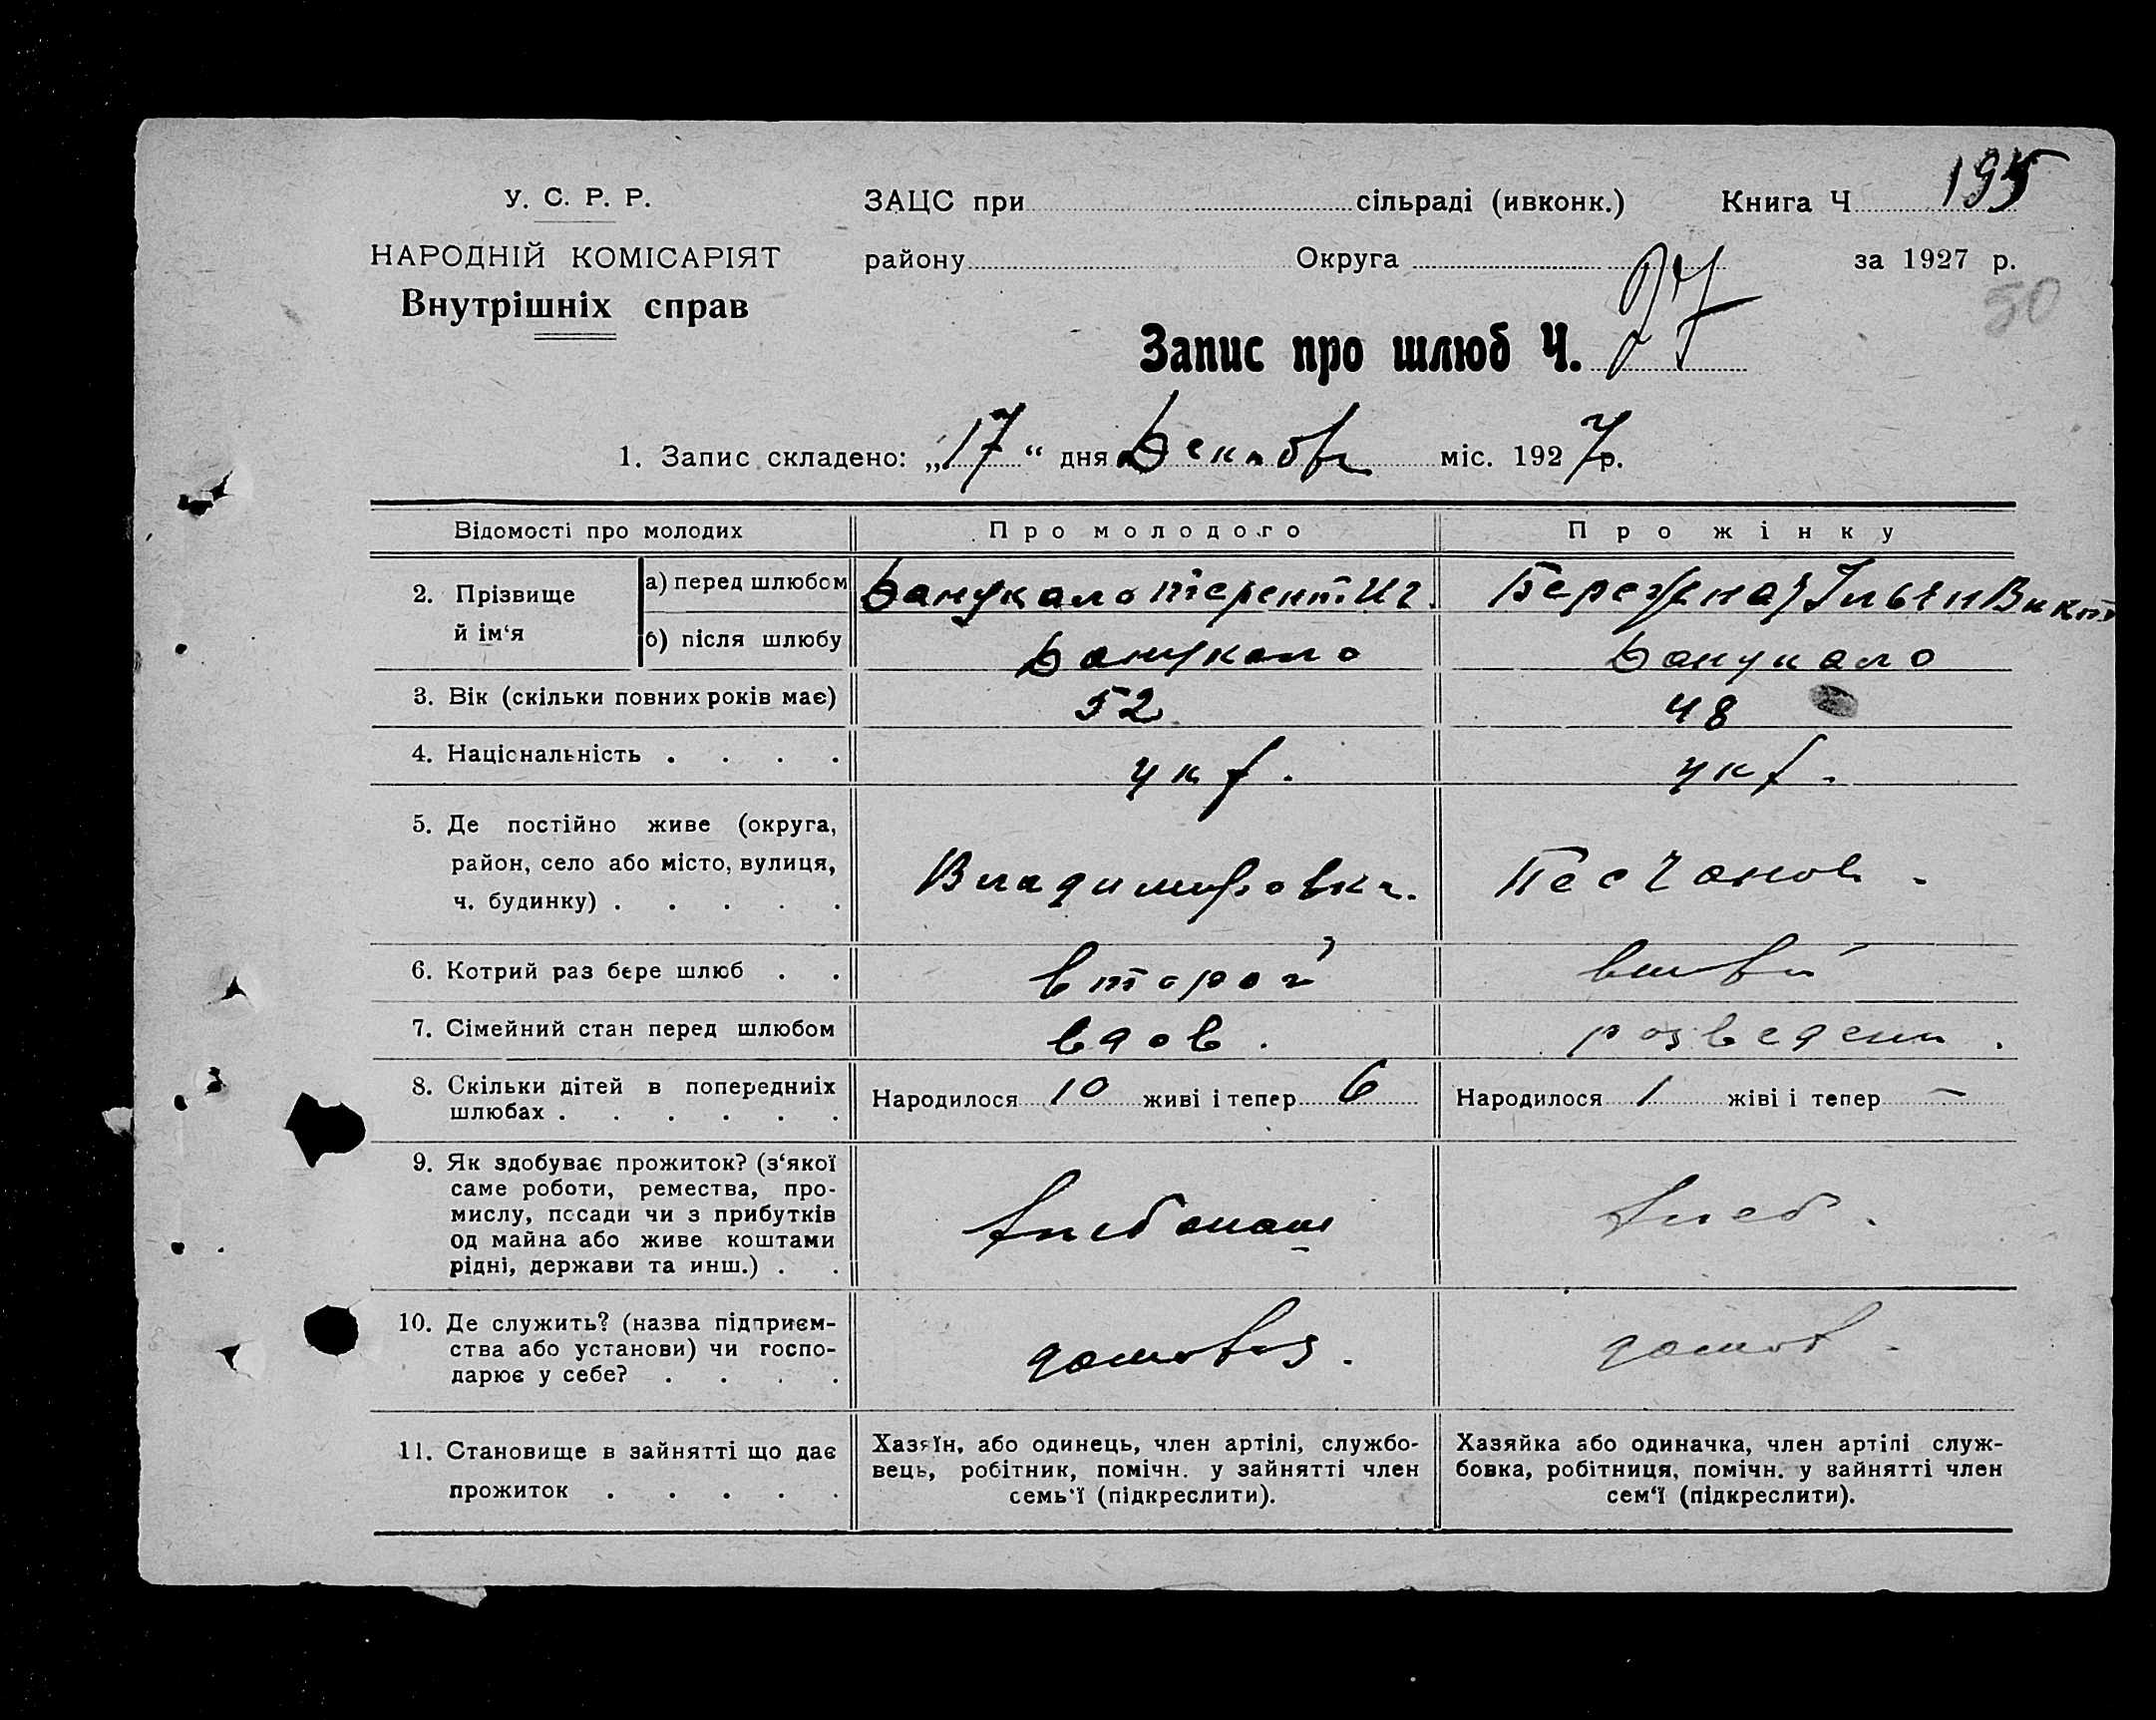 195
У. С. Р. Р.
ЗАЦС при сільраді (ивконк.) Книга Ч
НАРОДНІЙ КОМІСАРІЯТ
району Округа за 1927 р.
50
Внутрішніх справ
Запис про шлюб Ч.
1. Запис складено: „17“ дня міс. 1927 р.
Відомості про молодих
Про молодого
Про жінку
2. Прізвище й ім‘я
а) перед шлюбом
б) після шлюбу
3. Вік (скільки повних років має)
52
48
4. Національність . . . .
укр.
укр.
5. Де постійно живе (округа,
район, село або місто, вулиця,
ч. будинку) . . . . .
Владимировка.
6. Котрий раз бере шлюб . .
второй
7. Сімейний стан перед шлюбом
вдов.
розведени.
8. Скільки дітей в попередниіх
шлюбах . . . . . .
Народилося 10 живі і тепер 6
Народилося 1 жіві і тепер –
9. Як здобуває прожиток? (з‘якої
саме роботи, ремества, про-
мислу, посади чи з прибутків
од майна або живе коштами
рідні, держави та инш.) . .
хлебопаш
хлеб.
10. Де служить? (назва підприєм-
ства або установи) чи госпо-
дарює у себе? . . . .
11. Становище в зайнятті що дає
прожиток . . . . .
Хазяїн, або одинець, член артілі, службо-
вець, робітник, помічн. у зайнятті член
семь‘ї (підкреслити).
Хазяйка або одиначка, член артілі служ-
бовка, робітниця, помічн. у зайнятті член
сем‘ї (підкреслити).